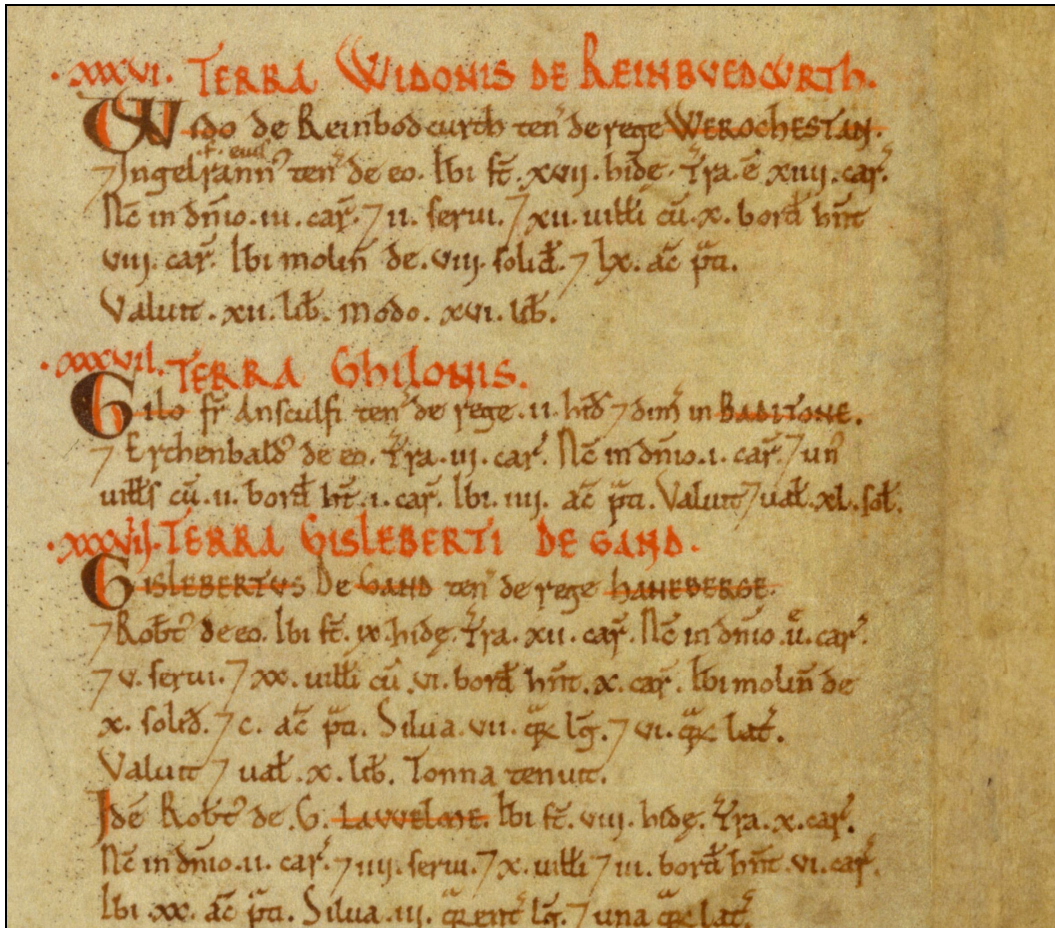 .XXXVI. TERRA WIDONIS DE REINBVEDCVRTH.
Wido de Reinbodcurth ten̄ de rege WEROCHESTAN.
.f. eius
⁊ Ingelrann' ten̄ de eo. Ibi st̄. xvii. hidę. T̄ra. ē xiiii. car̄.
Nc̄ in dn̄io. iii. car̄. ⁊ ii. serui. ⁊ xii. uilł̄i cū. x. bord̄ hn̄t
viii. car̄. Ibi molin̄ de. viii. solid̄. ⁊ lx. ac̄ p̄ti.
Valuit. xii. lib̄. Modo. xvi. lib̄.
.XXXVII. TERRA GHILONIS.
Gilo fr̄ Ansculfi ten̄ de rege. ii. hid̄ ⁊ dim̄ in BADITONE.
⁊ Erchenbald' de eo. T̄ra. iii. car̄. Nc̄ in dn̄io. i. car̄. ⁊ un'
uilł̄s cū. ii. bord̄ ht̄. i. car̄. Ibi. iiii. ac̄ p̄ti. Valuit ⁊ ual̄. xl. sol̄.
.XXXVIII. TERRA GISLEBERTI DE GAND.
GISLEBERTVS De GAND ten̄ de rege HANEBERGE.
⁊ Robt' de eo. Ibi st̄. ix. hidę. T̄ra. xii. car̄. Nc̄ in dn̄io. ii. car̄.
⁊ v. serui. ⁊ xx. uilł̄i cū. vi. bord̄ hn̄t. x. car̄. Ibi molin̄ de
x. solid̄. ⁊ c. ac̄ p̄ti. Silua. vii. qr̄ lḡ. ⁊ vi. qr̄ lat̄.
Valuit ⁊ ual̄. x. lib̄. Tonna tenuit.
Idē Robt' de .G. LAWELME. Ibi st̄. viii. hidę. T̄ra. x. car̄.
Nc̄ in dn̄io. ii. car̄. ⁊ iiii. serui. ⁊ x. uilł̄i ⁊ iii. bord̄ hn̄t. vi. car̄.
Ibi. xx. ac̄ p̄ti. Silua. iii. qr̄ent̄ lḡ. ⁊ una qr̄ lat̄.